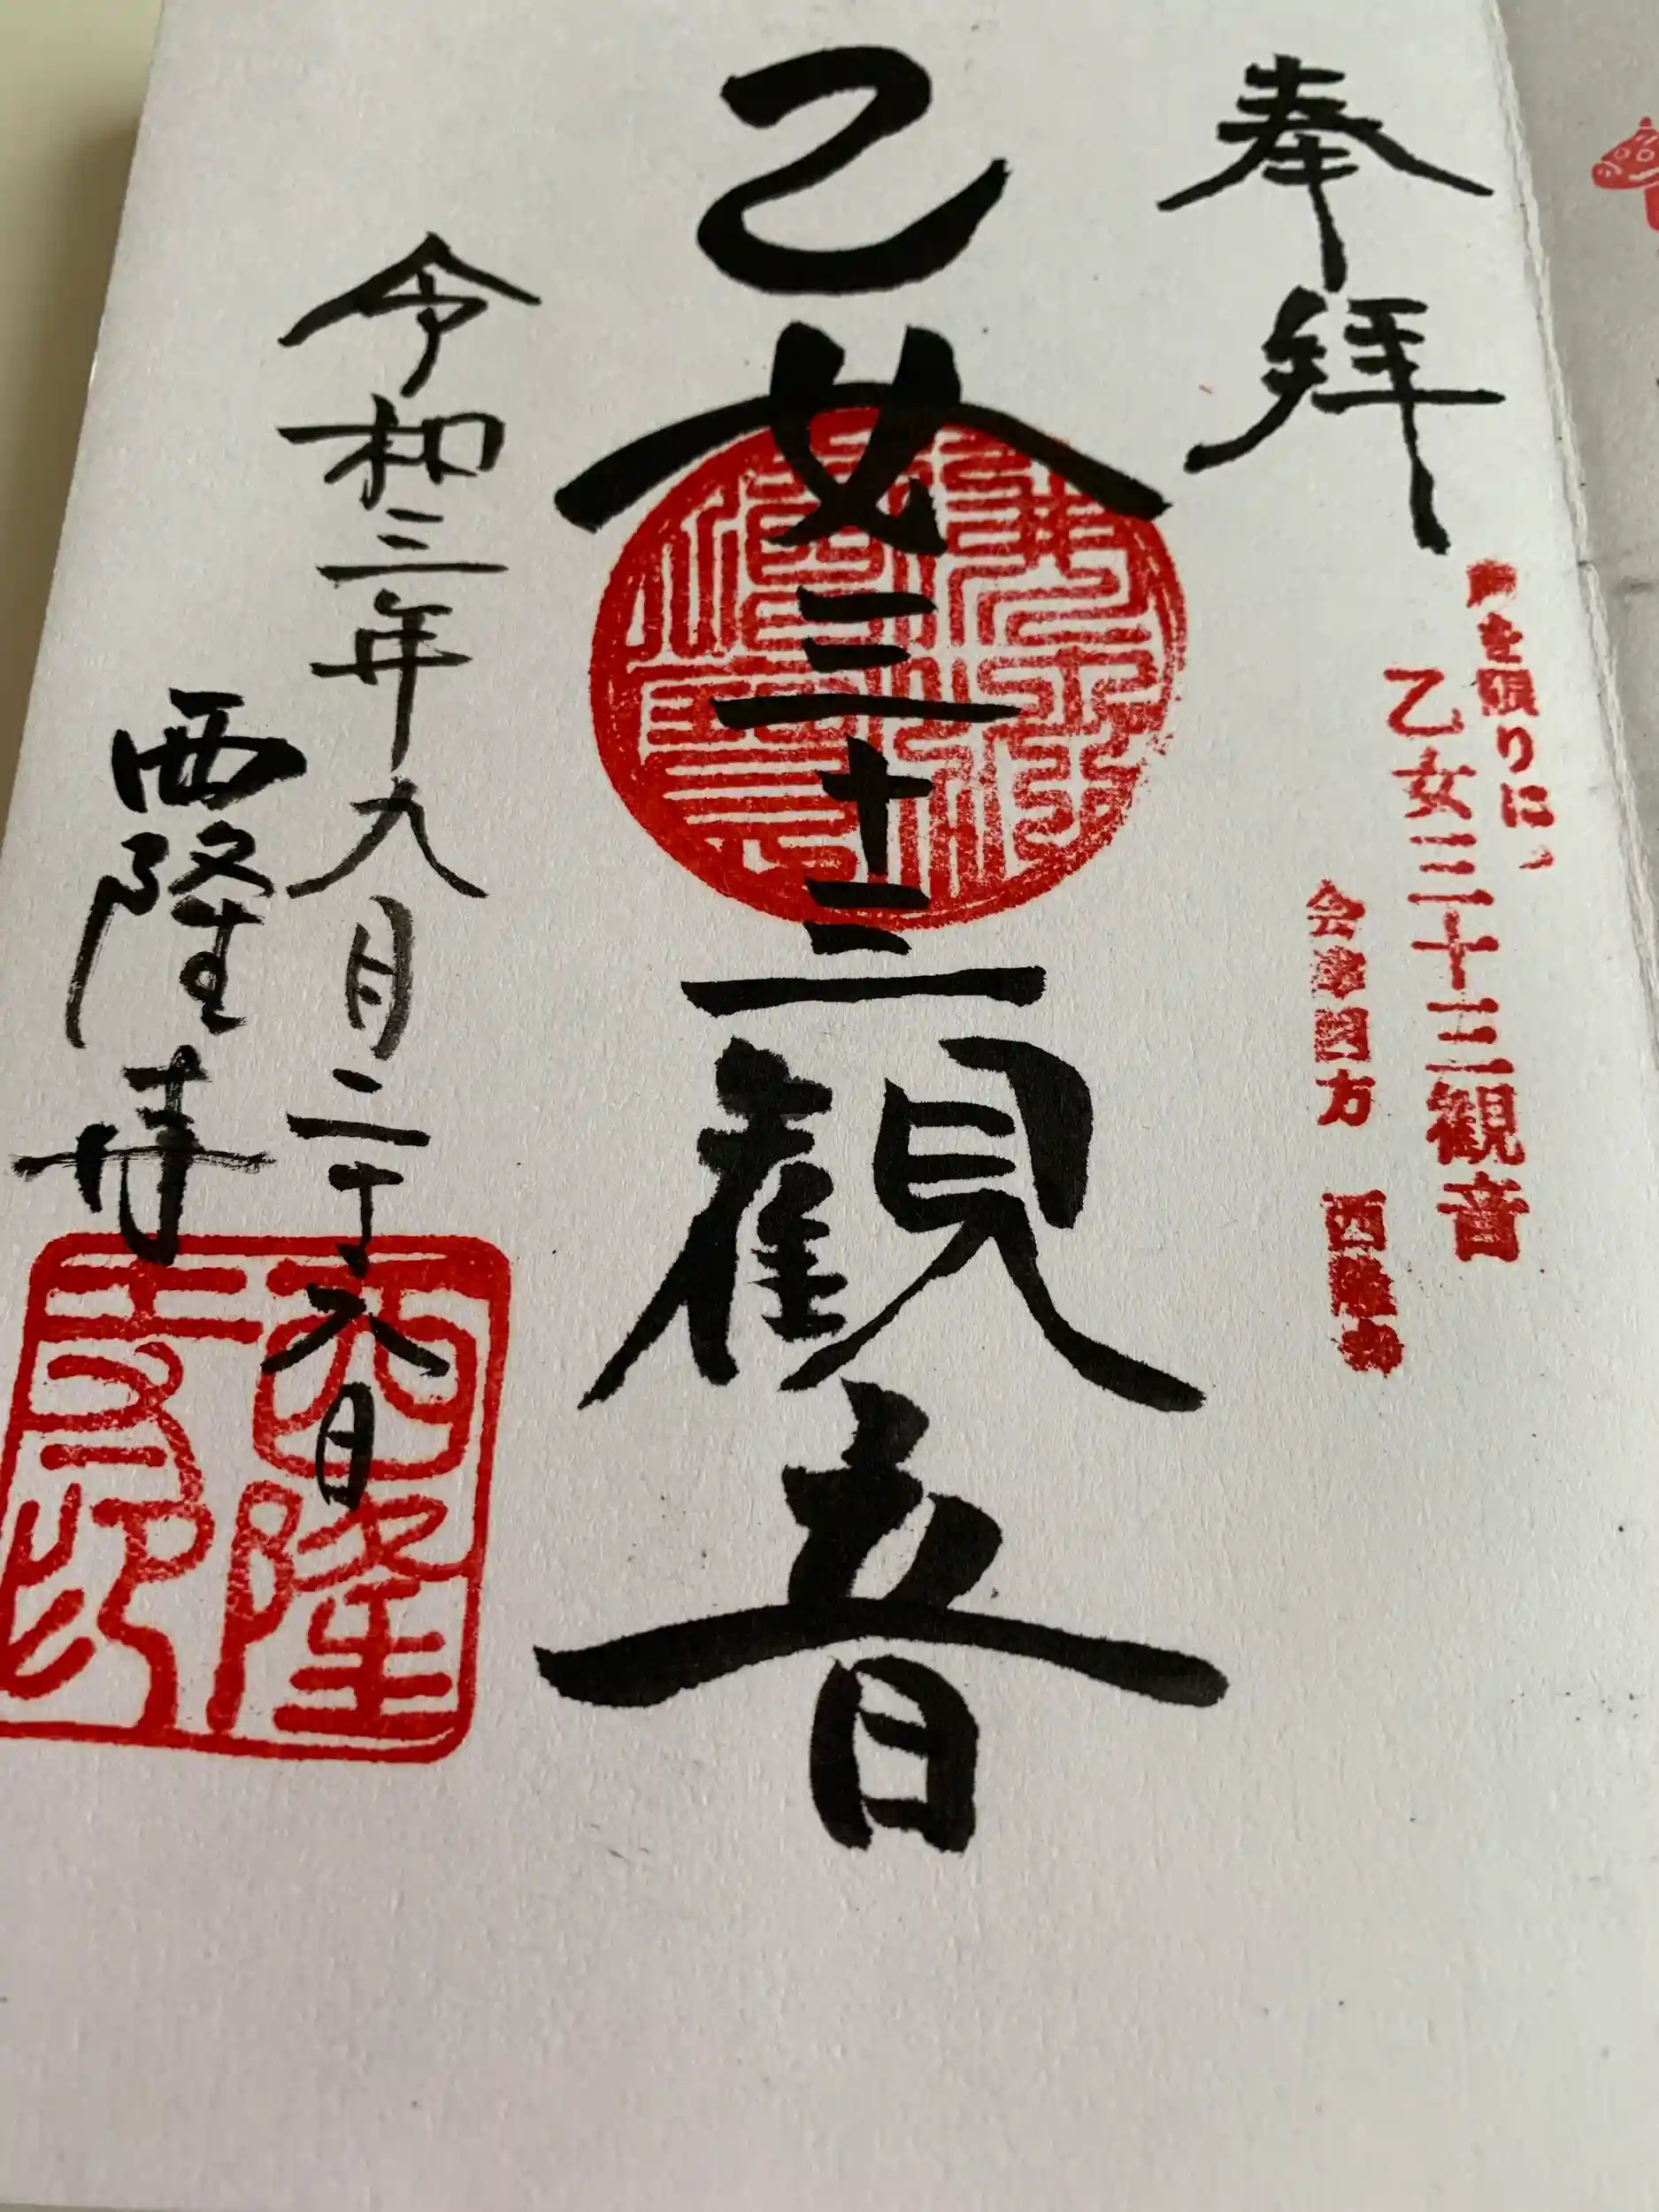 奉拝
を頼りに
乙女三十三観音
会津 方 西隆寺
乙女三十三観音
令和三年九月二十八日
西隆寺
西隆寺印